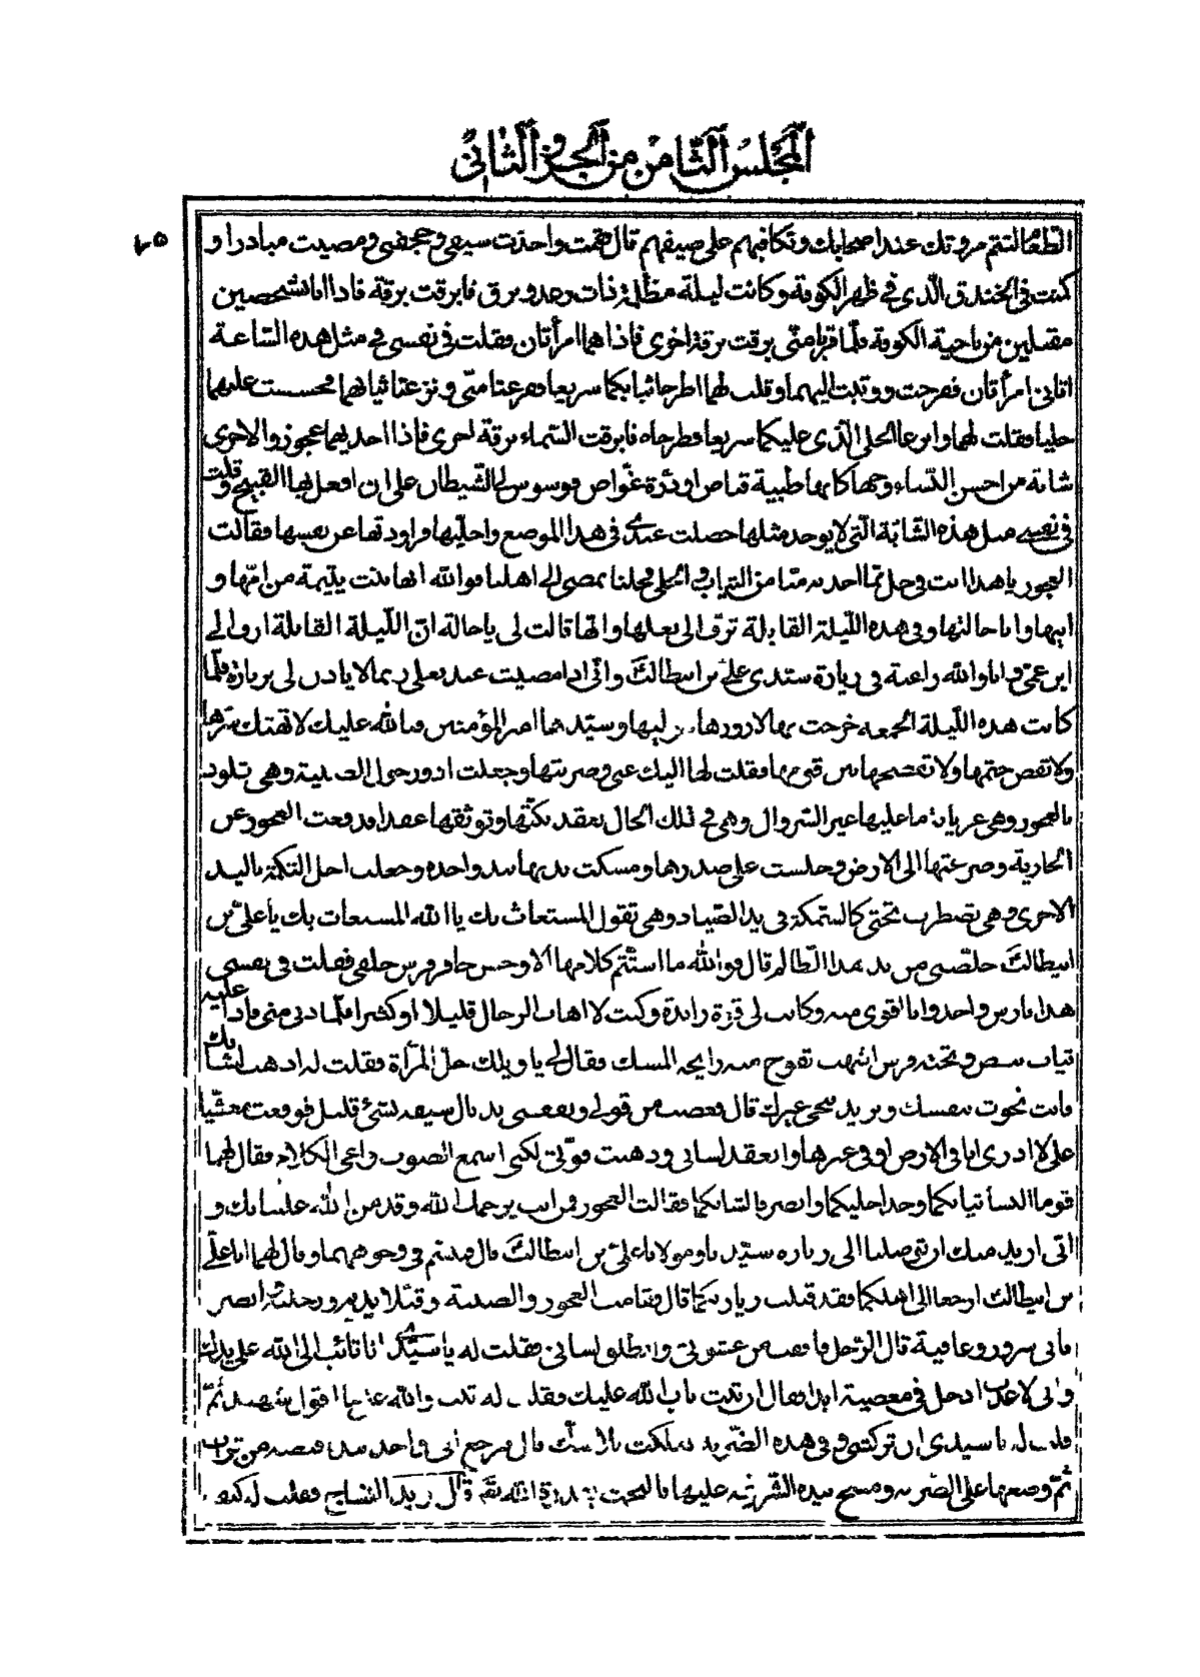 المجلس الثامن من الجزو الثاني
٢٥
الطعام لتتم مروتك عند اصحابك وتكافيهم على صنيعهم قال فقمت واخذت سيفي وحجفتي ومضيت مبادرا و
كمنت في الخندق الذي في ظهر الكوفة وكانت ليلة مظلمة ذات رعد وبرق فابرقت برقة فاذا انا بشخصين
مقبلين من ناحية الكوفة فلما قربا مني برقت برقة اخرى فاذا هما امرأتان فقلت في نفسي في مثل هذه الساعة
اتاني امرأتان ففرحت ووثبت اليهما وقلت لهما اطرحا ثيابكما سريعا ففزعتا مني ونزعتا ثيابهما فحسست عليهما
حليا فقلت لهما وانزعا الحلي الذي عليكما سريعا فطرحاه فابرقت السماء برقة اخرى فاذا احديهما عجوز والاخرى
شابة من احسن النساء وجها كانها ظبية قناص او درة غواص فوسوس لي الشيطان على ان افعل بها القبيح وقلت
في نفسي مثل هذه الشابة التي لا يوجد مثلها حصلت عندي في هذا الموضع واخليها فراودتها عن نفسها فقالت
العجوز يا هذا انت في حل مما اخذته منا من الثياب والحلي فخلنا نمضي الى اهلنا فوالله انها بنت يتيمة من امها و
ابيها وانا خالتها وفي هذه الليلة القابلة تزف الى بعلها وانها قالت لي يا خالة ان الليلة القابلة ازف الى
ابن عمي وانا والله راغبة في زيارة سيدي علي بن ابيطالب واني اذا مضيت عند بعلي ربما لا ياذن لي بزيارته فلما
كانت هذه الليلة الجمعة خرجت بها لازورها الى سيدها امير المؤمنين فبالله عليك لا تهتك سترها
ولا تفض ختمها ولا تفضحها بين قومها فقلت لها اليك عني وضربتها وجعلت ادور حول الصبية وهي تلوذ
بالعجوز وهي عريانة ما عليها غير السروال وهي في تلك الحال تعقد تكتها وتوثقها عقدا فدفعت العجوز عن
الجارية وصرعتها الى الارض وجلست على صدرها ومسكت يديها بيد واحدة وجعلت احل التكة باليد
الاخرى وهي تضطرب تحتي كالسمكة في يد الصياد وهي تقول المستغاث بك يا الله المستغاث بك يا علي بن
ابيطالب خلصني من يد هذا الظالم قال فوالله ما استتم كلامها الا وحس حافر فرس خلفي فقلت في نفسي
هذا فارس واحد وانا اقوى منه وكانت لي قوة زائدة وكنت لا اهاب الرجال قليلا او كثيرا فلما دنى مني فاذا عليه
ثياب بيض وتحته فرس اشهب تفوح منه رايحة المسك فقال لي يا ويلك خل المرأة فقلت له اذهب لشأنك
فانت نجوت بنفسك وتريد تنجي غيرك قال فغضب من قولي ونفحني بذبال سيفه بشئ قليل فوقعت مغشيا
علي لا ادري انا في الارض او في غيرها وانعقد لساني وذهبت قوتي لكني اسمع الصوت واعي الكلام فقال لهما
قوما البسا ثيابكما وخذا حليكما وانصرفا لشانكما فقالت العجوز فمن انت يرحمك الله وقد من الله علينا بك و
اني اريد منك ان توصلنا الى زيارة سيدنا ومولانا علي بن ابيطالب قال فتبسم في وجوههما وقال لهما انا علي
بن ابيطالب ارجعا الى اهلكما فقد قبلت زيارتكما قال فقامت العجوز والصبية وقبلا يديه ورجليه وانصر
فا في سرور وعافية قال الرجل فافقت من غشوتي وانطلق لساني فقلت له يا سيدي انا تائب الى الله على يديك
واني لاعدت ادخل في معصية ابدا فقال ان تبت تاب الله عليك فقلت له تبت والله على ما اقول شهيد ثم
قلت له يا سيدي ان تركتني وفي هذه الضربة هلكت بلا شك قال فرجع الي واخذ بيده قبضة من تراب
ثم وضعها على الضربة ومسح بيده الشريفة عليها فالتحمت بقدرة الله تعالى قال زيد النساج فقلت له كيف